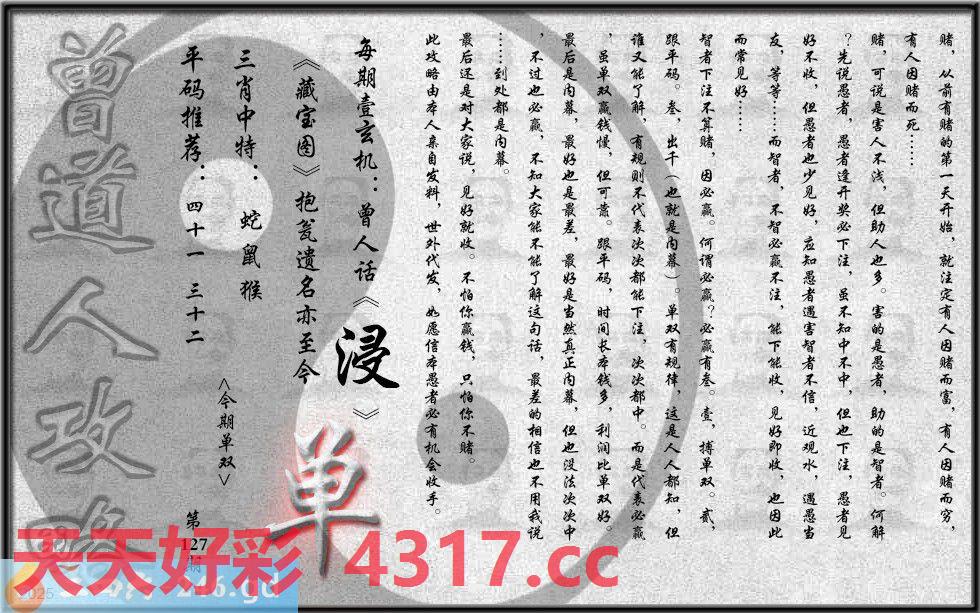 赌，从前有赌的第一天开始，就注定有人因赌而富，有人因赌而穷，
有人因赌而死……
赌，可说是害人不浅，但助人也多。害的是愚者，助的是智者。何解
？先说愚者，愚者逢开奖必下注，虽不知中不中，但也下注，愚者见
好不收，但愚者也少见好，应知愚者遇害智者不信，近观水，遇愚当
友，等等……而智者，不智必赢不注，能下能收，见好即收，也因此
而常见好……
智者下注不算赌，因必赢。何谓必赢？必赢有叁。壹，搏单双。贰，
跟平码。叁，出千（也就是内幕）。单双有规律，这是人人都知，但
谁又能了解，有规则不代表次次都能下注，次次都中。而是代表必赢
，虽单双赢钱慢，但可靠。跟平码，时间长本钱多，利润比单双好。
最后是内幕，最好也是最差，最好是当然真正内幕，但也没法次次中
，不过也必赢，不知大家能不能了解这句话，最差的相信也不用我说
……到处都是内幕。
最后还是对大家说，见好就收。不怕你赢钱，只怕你不赌。
此攻略由本人亲自发料，世外代发，如愿信本愚者必有机会收手。
每期壹玄机：曾人话《浸》
《藏宝图》抱瓮遗名亦至今
单
三肖中特：蛇鼠猴
<今期单双>
平码推荐：四十一 三十二
第
127
期
曾道人攻略
天天好彩 4317.cc
2025